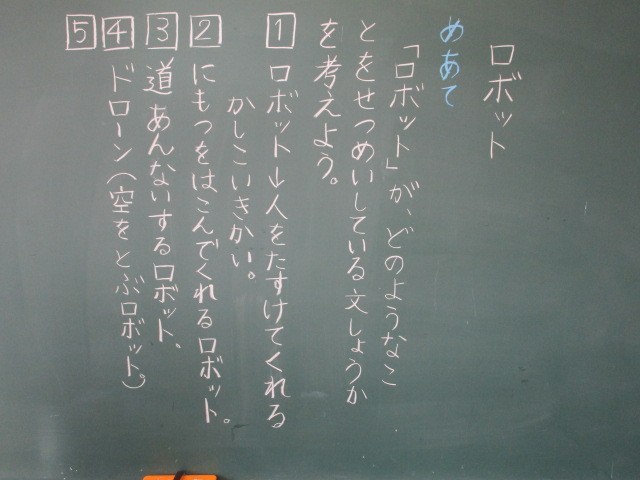 ロボット
めあて
「ロボット」が、どのようなこ
とをせつめいしている文しょうか
を考えよう。
1 ロボット→人をたすけてくれる
かしこいきかい。
2 にもつをはこんでくれるロボット。
3 道あんないするロボット、
4 ドローン(空をとぶロボット。)
5